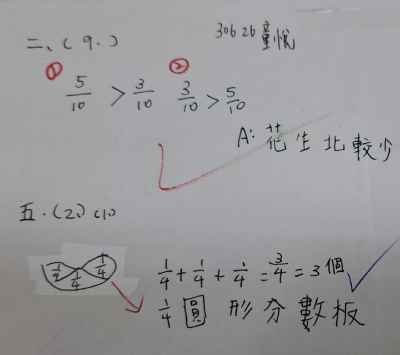 30626 童悅
二、(9.)
① 5/10 > 3/10 ② 3/10 > 5/10
A: 花生比較少
五.(2)(1)
1/4 1/4 1/4
1/4 + 1/4 + 1/4 = 3/4 = 3個
1/4 圓形分數板